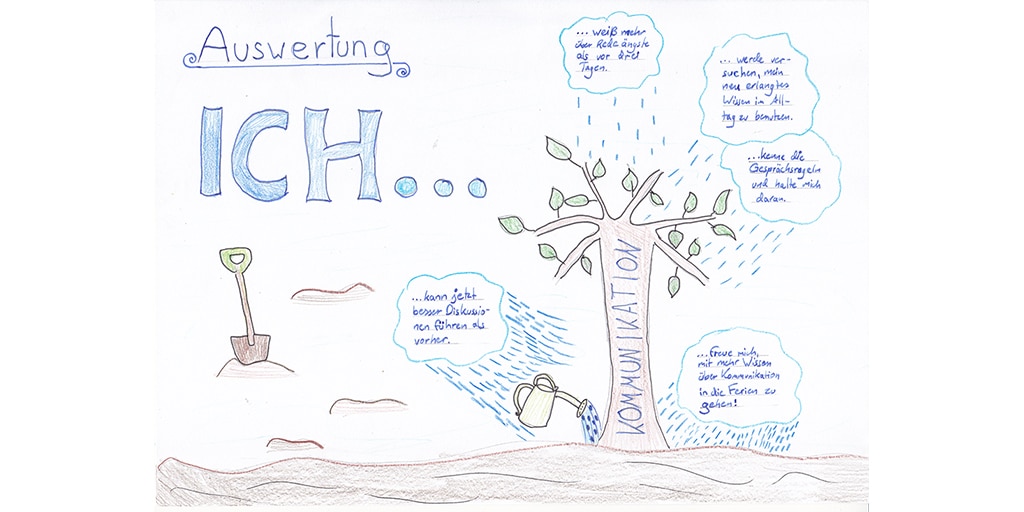 Auswertung
ICH...
... weiß mehr
über Redeängste
als vor drei
Tagen.
... werde ver-
suchen, mein
neu erlangtes
Wissen im All-
tag zu benutzen.
...kenne die
Gesprächsregeln
und halte mich
daran.
KOMMUNIKATION
...kann jetzt
besser Diskussio-
nen führen als
vorher.
...freue mich,
mit mehr Wissen
über Kommunikation
in die Ferien zu
gehen!